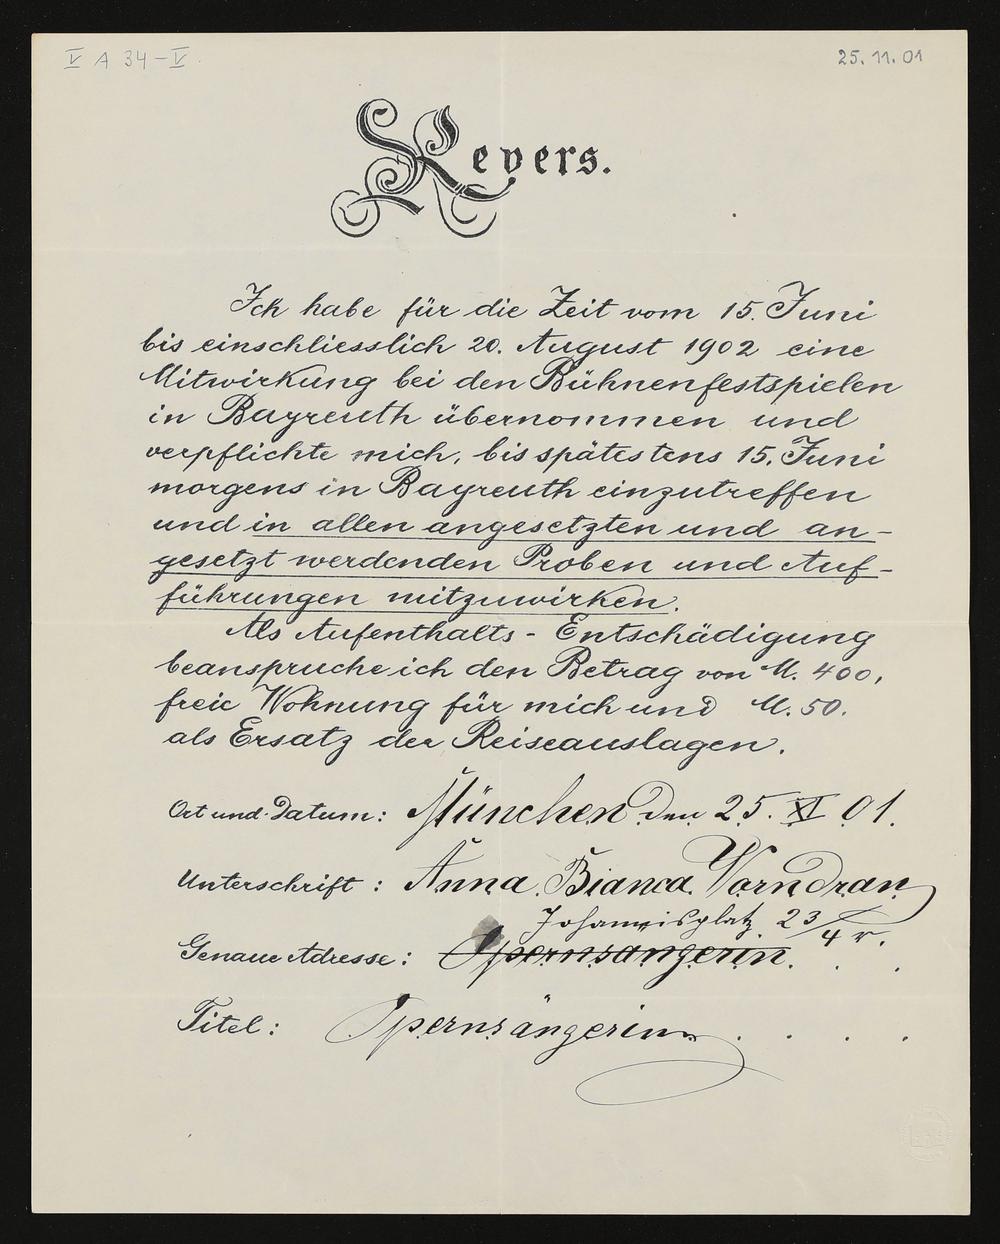 V A 34-V.
25.11.01
Revers.
Ich habe für die Zeit vom 15. Juni
bis einschliesslich 20. August 1902 eine
Mitwirkung bei den Bühnenfestspielen
in Bayreuth übernommen und
verpflichte mich, bis spätestens 15. Juni
morgens in Bayreuth einzutreffen
und in allen angesetzten und an-
gesetzt werdenden Proben und Auf-
führungen mitzuwirken.
Als Aufenthalts-Entschädigung
beanspruche ich den Betrag von M. 400,
freie Wohnung für mich und M. 50.
als Ersatz der Reiseauslagen.
Ort und Datum: München den 25. XI 01.
Unterschrift: Anna Bianca Vorndran
Johannisplatz 23/4 r.
Genaue Adresse: Opernsängerin.
Titel: Opernsängerin